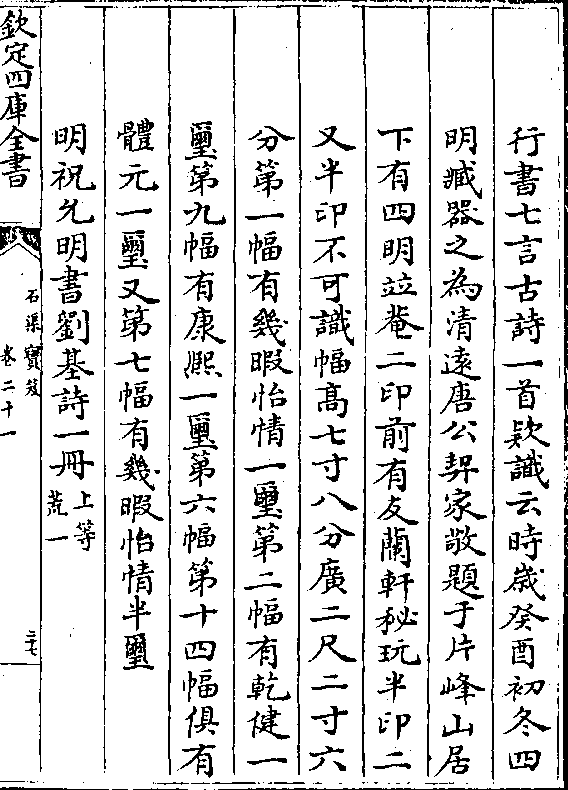 行書七言古詩一首欵識云時歲癸酉初冬四
明臧器之為清遠唐公契家敬題于片峰山居
下有四明並菴二印前有友蘭軒秘玩半印二
又半印不可識幅髙七寸八分廣二尺二寸六
分第一幅有幾暇怡情一璽第二幅有乾健一
璽第九幅有康熈一璽第六幅第十四幅俱有
體元一璽又第七幅有幾暇怡情半璽
明祝允明書劉基詩一冊上等荒一
欽定四庫全書
石渠寶笈
卷二十一
三十七